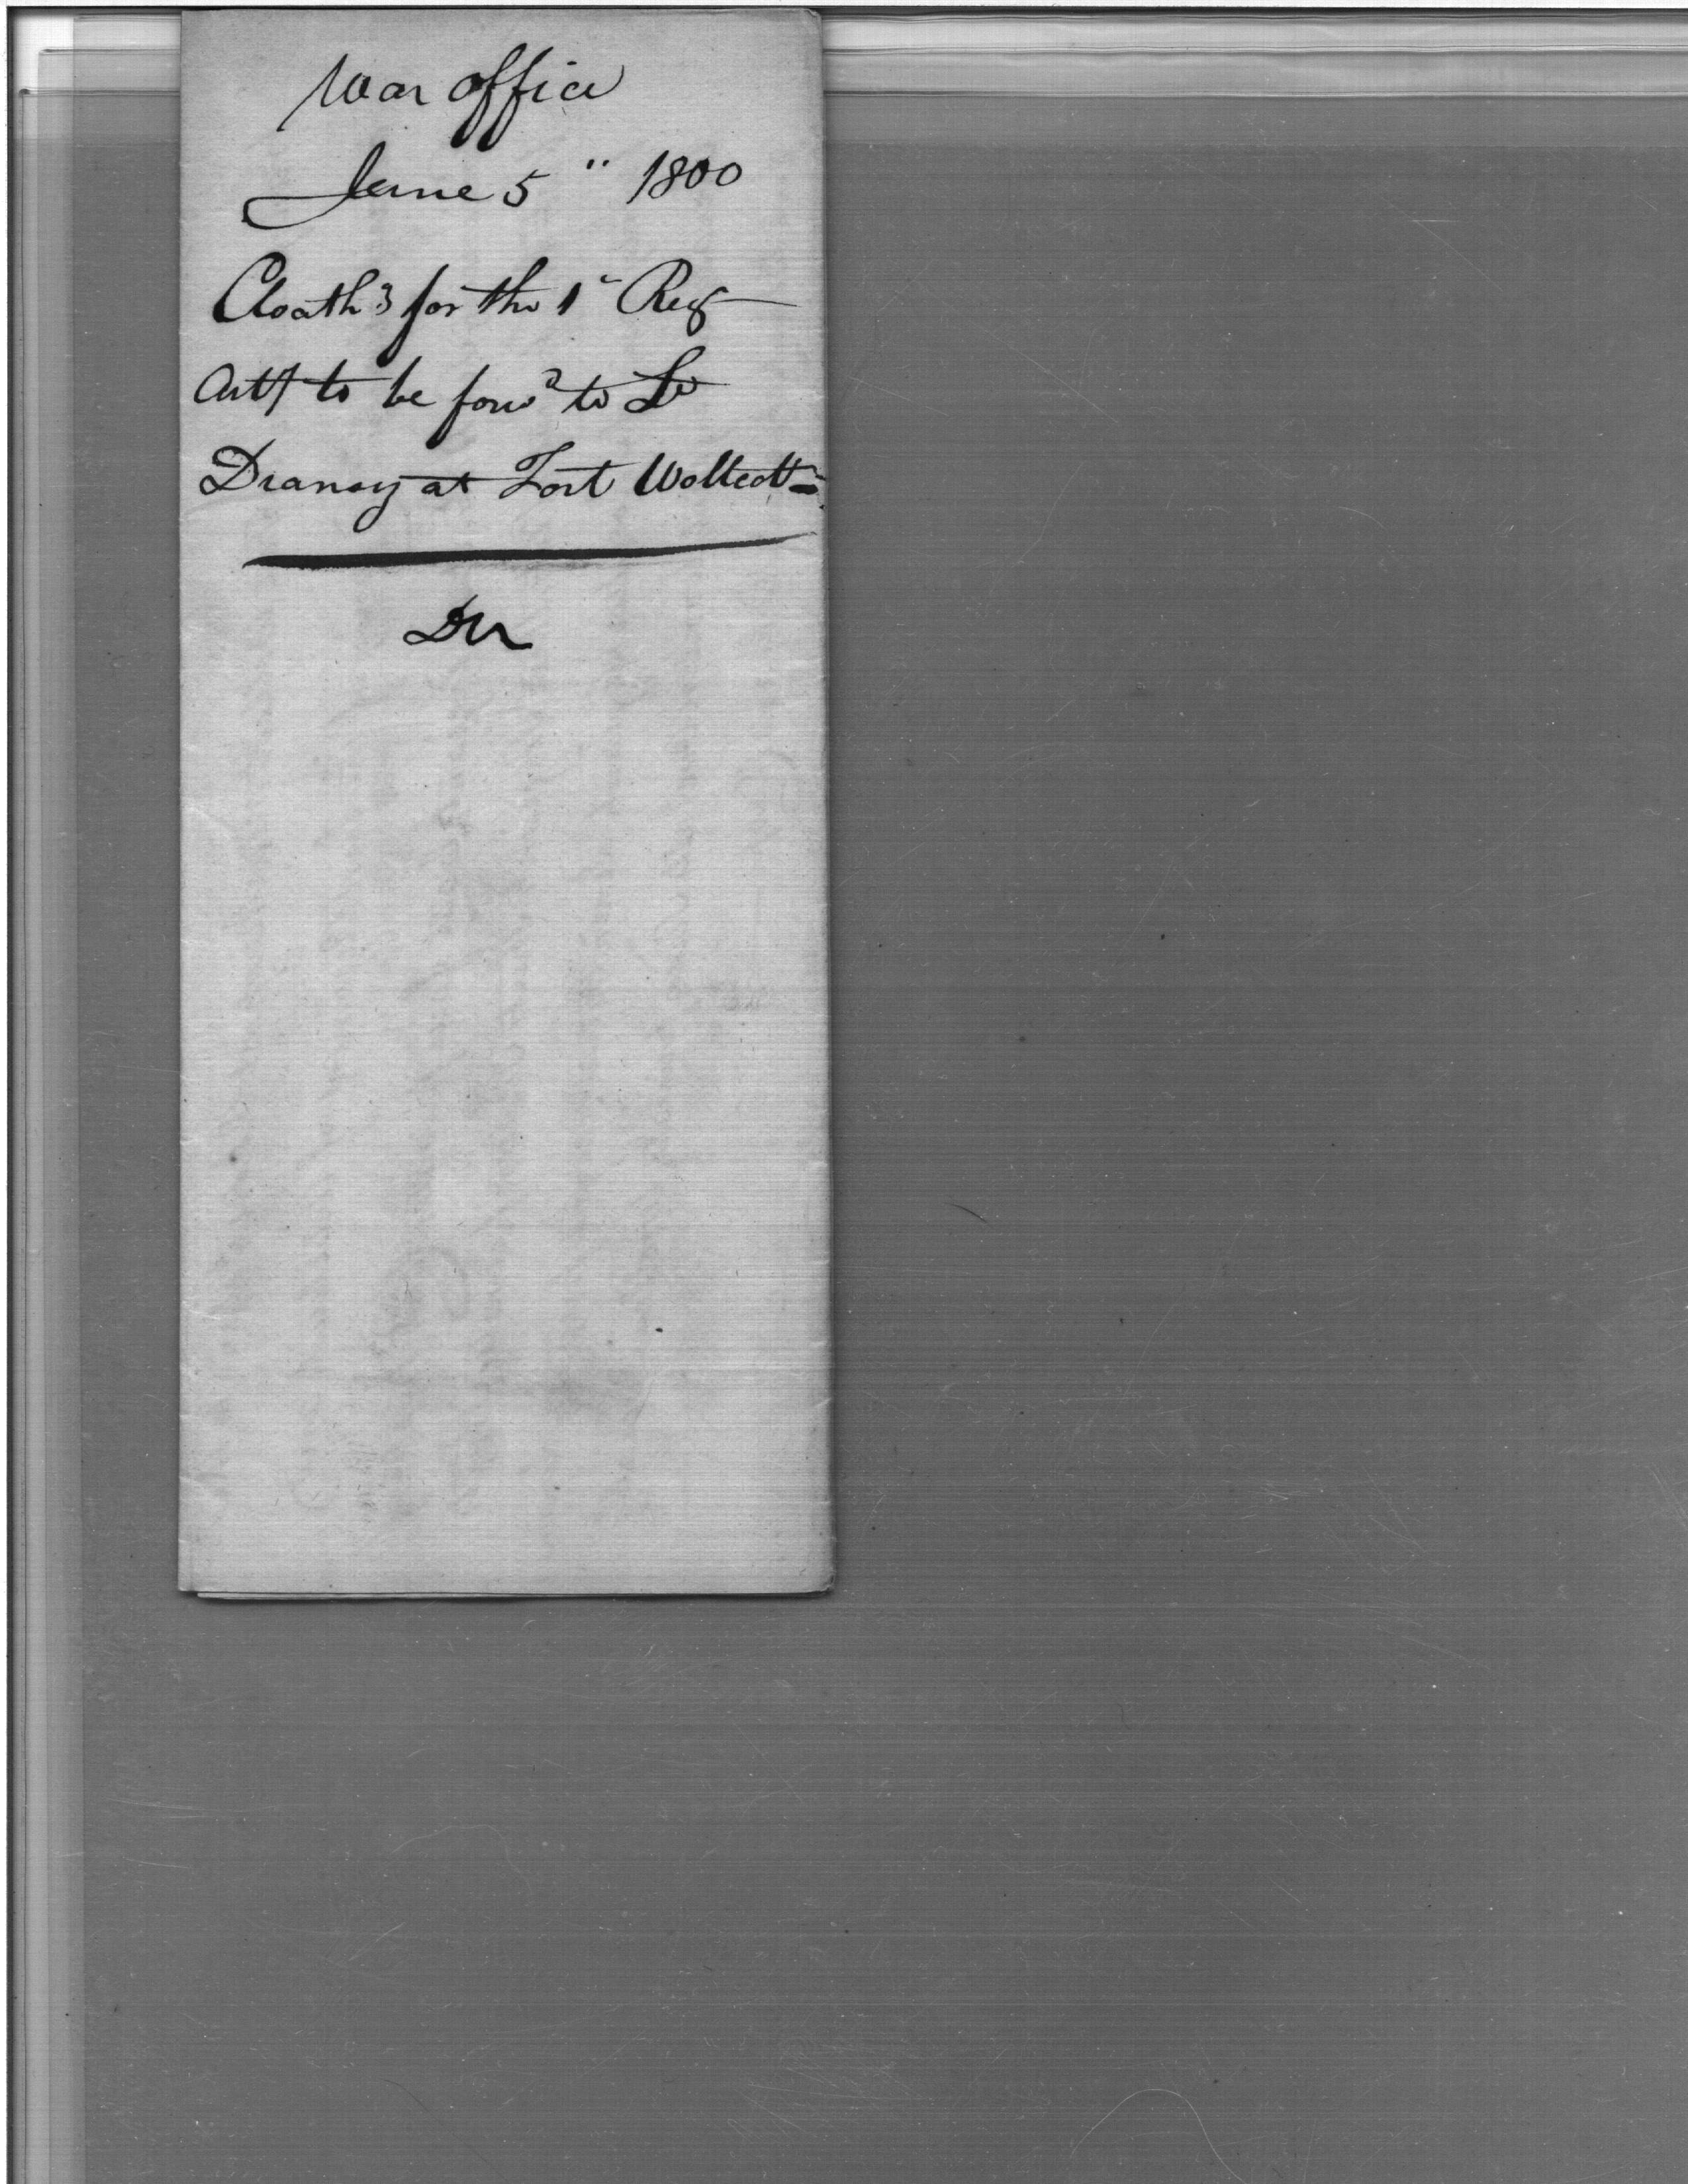 War office
June 5" 1800
Cloath3 for the 1" Reg
Art/ to be forwd to Lt
Drancy at Fort Wollcott